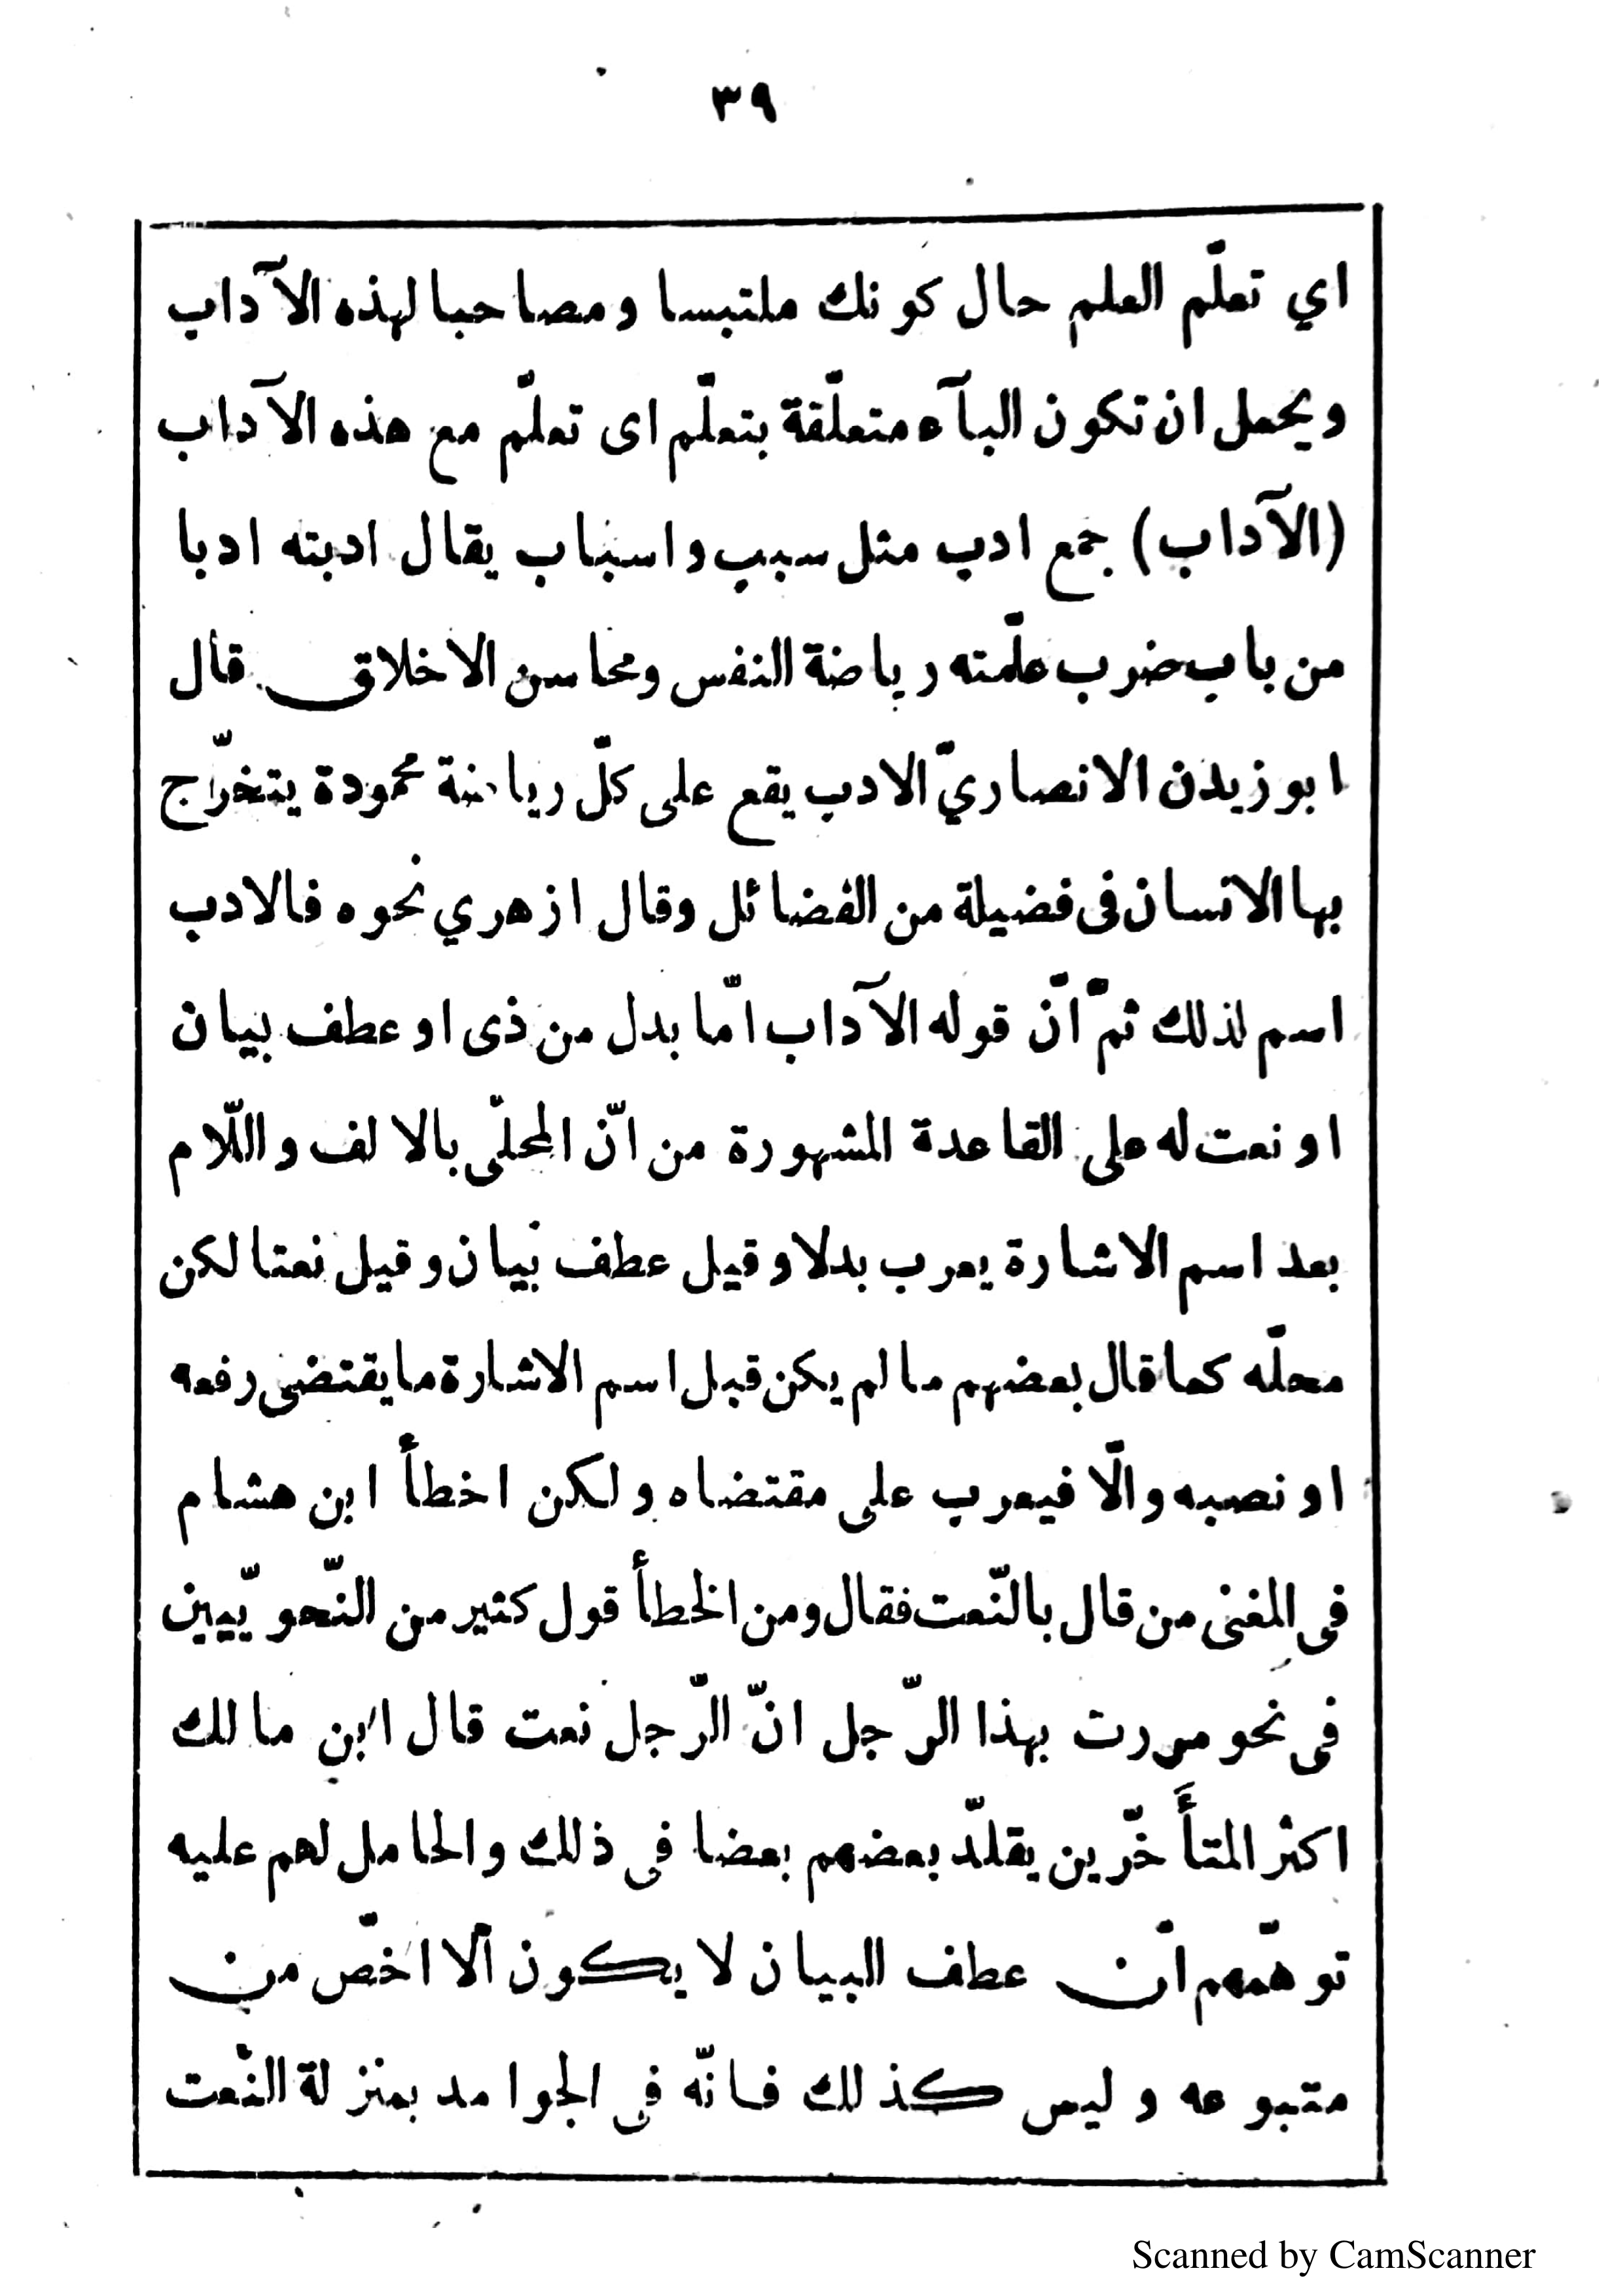 ٣٩
اي تعلّم العلم حال كونك ملتبسا ومصاحبا لهذه الآداب
ويحمل ان تكون البآء متعلّقة بتعلّم اى تعلّم مع هذه الآداب
(الآداب) جمع ادب مثل سبب واسباب يقال ادبته ادبا
من باب ضرب علّمته رياضة النفس ومحاسن الاخلاق قال
ابو زيدن الانصاريّ الادب يقع على كلّ رياضة محمودة يتخرّج
بها الانسان فى فضيلة من الفضائل وقال ازهري نحوه فالادب
اسم لذلك ثمّ انّ قوله الآداب امّا بدل من ذى او عطف بيان
او نعت له على القاعدة المشهورة من انّ المحلّى بالالف واللّام
بعد اسم الاشارة يعرب بدلا وقيل عطف بيان وقيل نعتا لكن
محلّه كما قال بعضهم ما لم يكن قبل اسم الاشارة ما يقتضى رفعه
او نصبه والّا فيعرب على مقتضاه ولكن اخطأ ابن هشام
فى المغنى من قال بالنّعت فقال ومن الخطأ قول كثير من النّحويّيين
فى نحو مررت بهذا الرّجل انّ الرّجل نعت قال ابن مالك
اكثر المتأَخّرين يقلّد بعضهم بعضا فى ذلك والحامل لهم عليه
توهّمهم انّ عطف البيان لا يكون الّا اخصّ من
متبوعه وليس كذلك فانّه فى الجوامد بمنزلة النّعت
Scanned by CamScanner